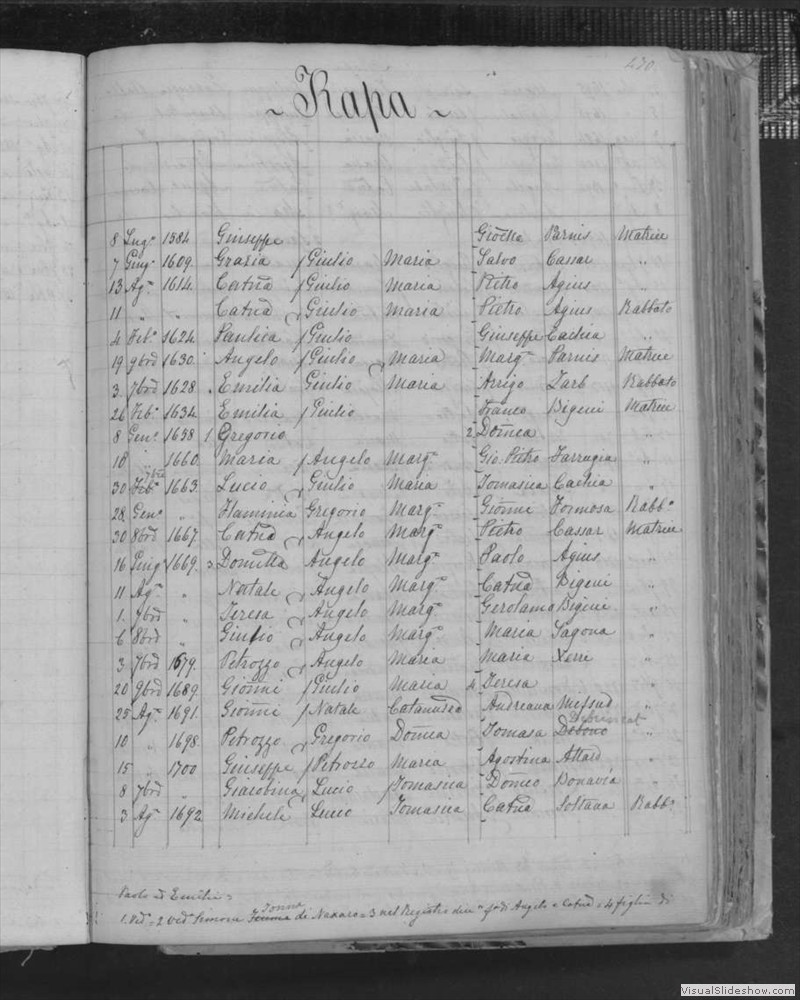 430.
~ Kapa ~
8 Lug.º 1584 Giuseppe Giōēlla Parnis Matrice
7 Giug.º 1609. Grazia f Giulio Maria Salvo Cassar "
13 Ag.º 1614. Catña f Giulio Maria Pietro Agius "
11 " " Catña f Giulio Maria Pietro Agius Rabbato
4 Feb.º 1624. Paulica f Giulio Giuseppe Cachia "
19 9brē 1630. Angelo f Giulio Maria Marg.ª Parnis Matrice
3 7brē 1628. Emilia Giulio Maria Arrigo Zarb Rabbato
26 Feb.º 1634. Emilia f Giulio Franco Bigeni Matrice
8 Gen.º 1638 1. Gregorio 2. Domēca "
18 " 1660. Maria f Angelo Marg.ª Gio: Pietro Farrugia "
30 Feb.º 1663. Lucio Giulio Maria Tomasica Cachia "
28 Gen.º " Flaminia Gregorio Marg.ª Gioñi Formosa Rabb.º
30 8brē 1667. Catña Angelo Marg.ª Pietro Cassar Matrice
16 Giug.º 1669. 3. Domilla Angelo Marg.ª Paolo Agius "
11 Ag.º " Natale Angelo Marg.ª Catña Bigeni "
1. 9brē " Teresa Angelo Marg.ª Gerolama Bigeni "
6 8brē " Giulio Angelo Marg.ª Maria Sagona "
3 7brē 1679. Petrozzo Angelo Maria Maria Xerri "
20 9brē 1689. Gioñi f Giulio Maria 4. Teresa "
25 Ag.º 1691. Gioñi f Natale Catanuzza Andreana Mifsud "
10 " 1698. Petrozzo Gregorio Domēca Tomasa Debono "
15 " 1700 Giuseppe f Petrozzo Maria Agostina Attard "
8 7brē " Giacobina Lucio f Tomasica Domēco Bonavia "
3 Ag.º 1692. Michele Lucio Tomasica Catña Soltana Rabb.º
Paolo ed Emilia =
1. Ved.º = 2 Ved. Simone Tonna di Naxaro = 3 nel Registro dice f di Angelo e Catña = 4 figlia di
VisualSlideshow.com